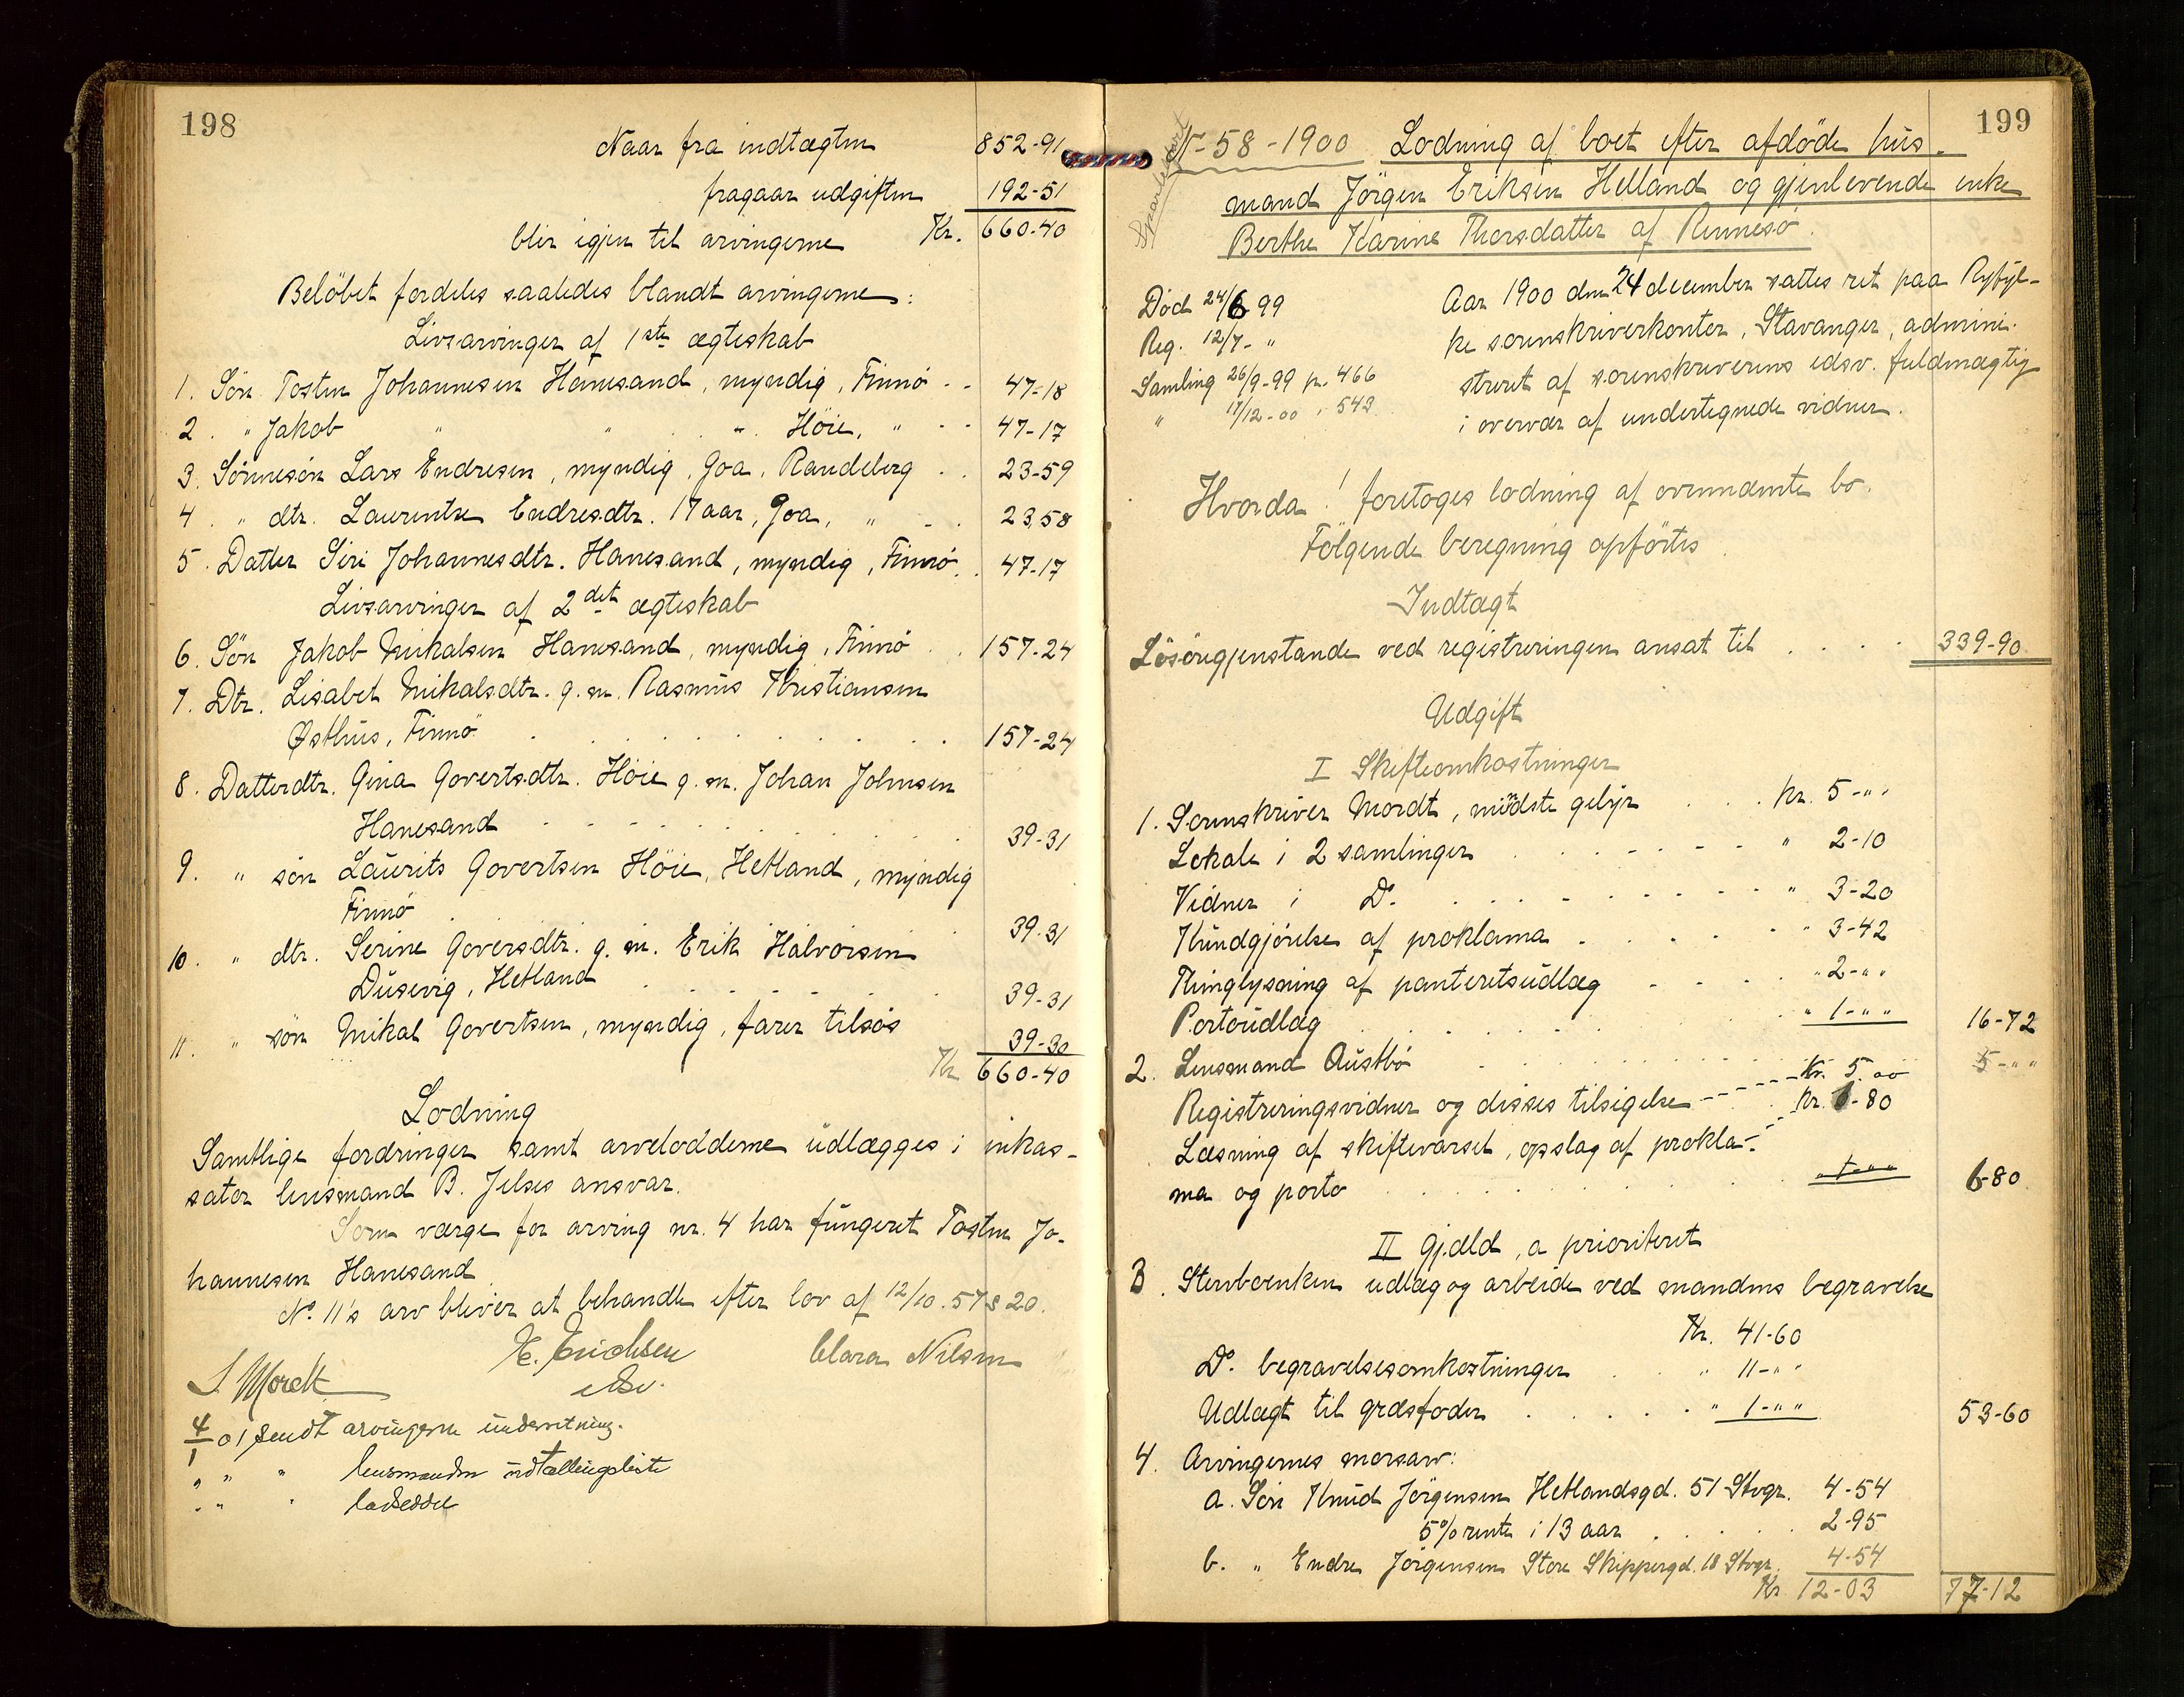 198
Naar fra indtægten 852-91
fragaar udgiften 192-51
blir igjen til arvingerne Kr. 660-40
Belöbet fordeles saaledes blandt arvingerne:
Livsarvinger af 1ste ægteskab
1. Sön Tosten Johannesen Hanesand, myndig, Finnö - - 47-18
2. " Jakob " " " Höie, " - - 47-17
3. Sönnesön Lars Endresen, myndig, Goa, Randeberg . . 23-59
4. " dtr. Laurentse Endresdtr. 17 aar, Goa, " - . 23,58
5. Datter Siri Johannesdtr. Hanesand, myndig, Finnö . . 47-17
Livsarvinger af 2det ægteskab
6. Sön Jakob Mikalsen Hanesand, myndig, Finnö . . 157-24
7. Dtr. Lisabet Mikalsdtr. g. m. Rasmus Kristiansen
Østhus, Finnö . . . . . . . . 157-24
8. Datterdtr. Gina Govertsdtr. Höie g. m. Johan Johnsen
Hanesand . . . . . . . . 39-31
9. " sön Laurits Govertsen Höie, Hetland, myndig
Finnö . 39-31
10. " dtr. Serine Goversdtr. g. m. Erik Halvorsen
Dusevig, Hetland . . . . . . 39-31
11. " sön Mikal Govertsen, myndig, farer tilsøs 39-30
Kr 660-40
Lodning
Samtlige fordringer samt arvelodderne udlægges i inkas-
sator lensmand B. Jelses ansvar.
Som værge for arving nr. 4 har fungeret Tosten Jo-
hannesen Hanesand
No. 11's arv bliver at behandle efter lov af 12/10. 57 § 20.
S. Mordt E. Erichsen Clara Nilsen
edsv.
4/1 01 sendt arvingerne underretning.
" " " lensmanden udtællingsliste
" " " lodseddel
199
N- 58 - 1900 Lodning af boet efter afdöde hus-
mand Jörgen Eriksen Helland og gjenlevende enke
Berthe Karine Thorsdatter af Rennesö.
Död 24/6 99
Reg. 12/7- "
Samling 26/9-99 p. 466
" 17/12-00 " 543
Aar 1900 den 24 december sattes ret paa Ryfyl-
ke sorenskriverkontor, Stavanger, admini-
streret af sorenskriverens edsv. fuldmægtig
i overvær af undertegnede vidner.
Hvorda! foretoges lodning af ovennævnte bo.
Fölgende beregning opförtes
Indtægt
Lösöregjenstande ved registreringen ansat til . . . . 339-90
Udgift
I Skifteomkostninger
1. Sorenskriver Mordt, mindste gebyr . . . kr. 5-" "
Lokale i 2 samlinger . . . . . . " 2-10
Vidner i Do. . . . . . . . " 3-20
Kundgjörelse af proklama . . . . . " 3-42
Thinglysning af panteretsudlæg - . . . " 2-" "
Portoudlæg . . . . . . " 1-" " 16-72
2. Lensmand Austbö . . . . . . 5-" "
Kr. 5.00
Registreringsvidner og disses tilsigelse - - - . kr. 6-80
Læsning af skiftevarsel, opslag af prokla-
ma og porto . . . . . . " 1-" " 6-80
II Gjæld, a prioriteret
3. Stervboenken udlæg og arbeide ved mandens begravelse
Kr. 41-60
Do. begravelsesomkostninger . . " 11-" "
Udlægt til græsfoder . . . . . " 1-" " 53-60
4. Arvingernes morsarv:
a. Sön Knud Jörgensen Hetlandsgd. 51 Stvgr. 4-54
5% rente i 13 aar . . . . . 2-95
b. " Endre Jörgensen Store Skippergd. 18 Stvgr. 4-54
Kr. 12-03 77-12